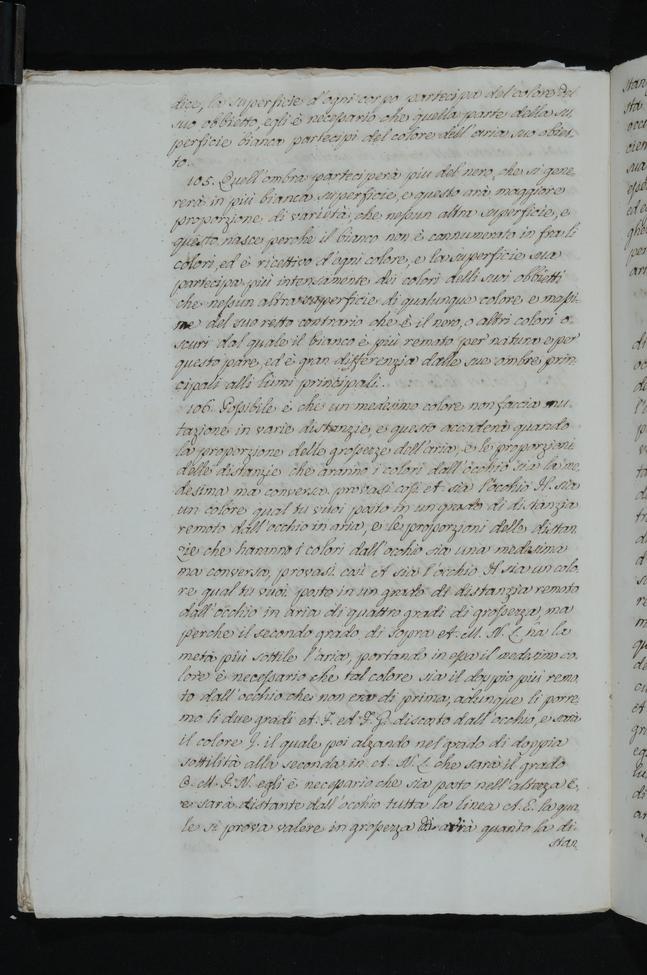 dice, la superficie d'ogni corpo partecipa del colore del
suo obbietto, egli è necessario che quella parte della su,
perficie bianca partecipi del colore dell'aria suo obbiet-
to.
105. Quell'ombra parteciperà più del nero, che si gene
rerà in più bianca superficie, e questo arà maggiore
proporzione di varietà, che nessun altra superficie, e
questo nasce perchè il bianco non è connumerato in fra li
colori, ed è ricettivo d'ogni colore, e la superficie sua
partecipa più intensamente dei colori delli suoi obbietti
che nessun altra superficie di qualunque colore, e massi-
me del suo retto contrario che è il nero, o altri colori o-
scuri dal quale il bianco è più remoto per natura e per
questo pare, ed è gran differenzia dalle sue ombre prin,
cipali alli lumi principali.
106. Possibile è che un medesimo colore non faccia mu-
tazione in varie distanzie, e questo accaderà quando
la proporzione delle grossezze dell'aria, e le proporzioni
delle distanzie che aranno i colori dall'occhio sia la me,
desima ma conversa, provasi così et sia l'occhio H. sia
un colore qual tu vuoi posto in un grado di distanzia
remoto dall'occhio in aria, e le proporzioni delle distan,
zie che haranno i colori dall'occhio sia una medesima
ma conversa, provasi così A sia l'occhio H sia un colo,
re qual tu vuoi posto in un grado di distanzia remoto
dall'occhio in aria di quattro gradi di grossezza, ma
perche il secondo grado di sopra et. M. N. L. ha la
metà più sottile l'aria, portando in essa il medesimo co,
lore è necessario che tal colore sia il doppio più remo,
to dall'occhio che non era di prima, adunque li porre,
mo li due gradi et. F. et F. G. discosto dall'occhio, e sarà
il colore J. il quale poi alzando nel grado di doppia
sottilità alla seconda in et. N. L. che sarà il grado
O. M. P. N. egli è necessario che sia posto nell'altezza E,
e sarà distante dall'occhio tutta la linea A. E. la qua,
le si prova valere in grossezza di aria quanto la di-
stan